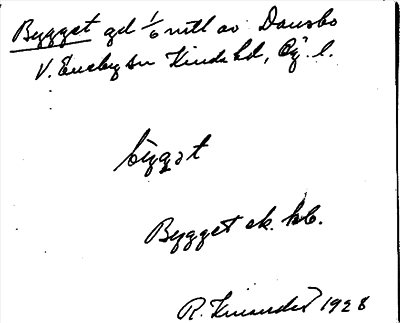 Bygget gd 1/6 mtl av Dansbo
V. Eneby sn Kinda hd, Ög. l.
bygget
Bygget ek. kb.
R. 1928